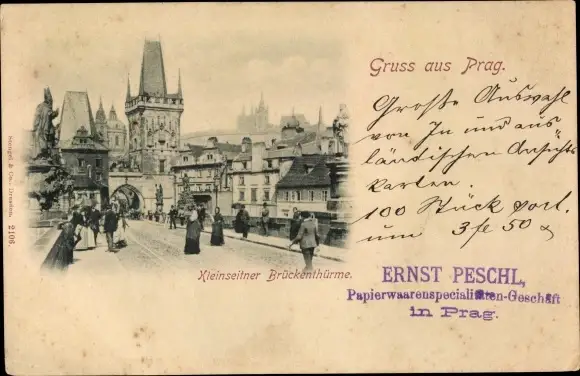 Gruss aus Prag.
Große Auswahl
von In und aus
ländischen Ansichts
karten.
100 Stück sort.
um 3 fl 50 x
ERNST PESCHL,
Papierwaarenspecialitäten-Geschäft
in Prag.
Kleinseitner Brückenthürme.
Stengel & Co., Dresden. 2106.